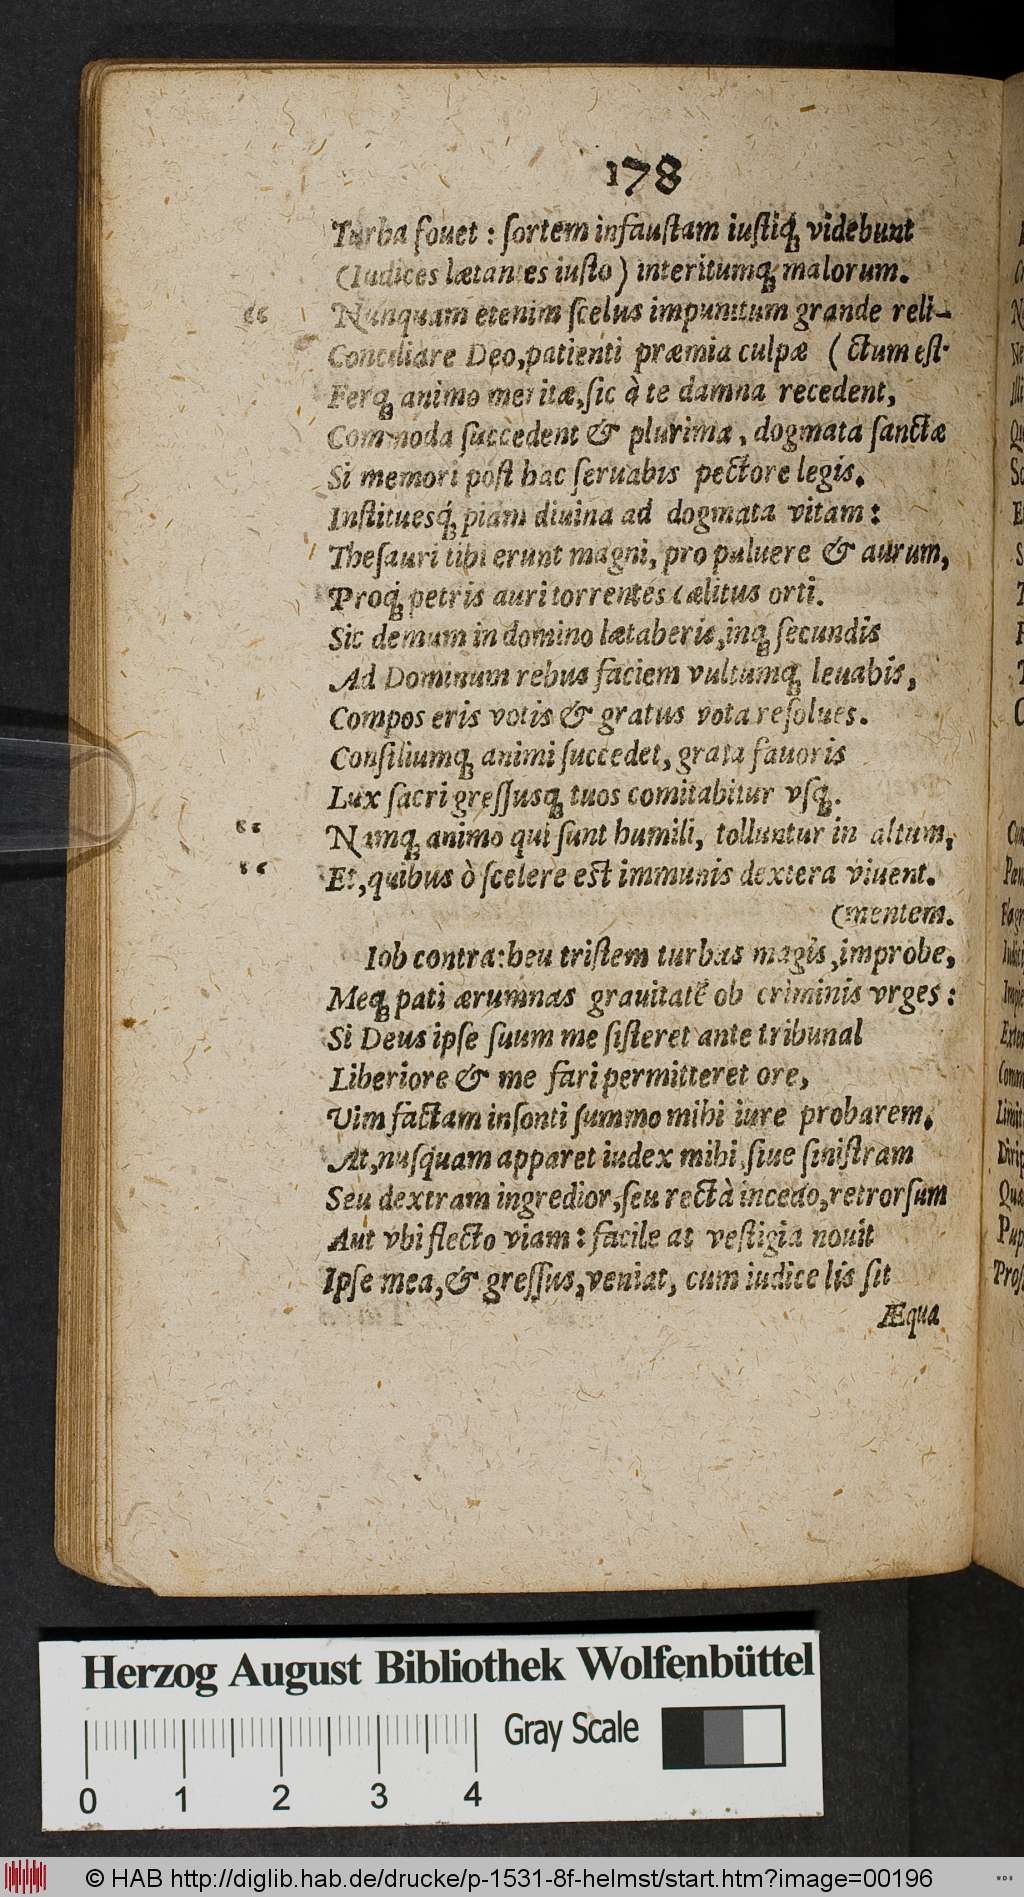 178
Turba fouet : ſortem infauſtam iuſtiq́; videbunt
(Iudices lætantes iuſto) interitumq; malorum.
“ Nunquam etenim ſcelus impunitum grande reli-
Conciliare Deo, patienti præmia culpæ (ctum eſt.
Ferq; animo meritæ, ſic à te damna recedent,
Commoda ſuccedent & plurima, dogmata ſanctæ
Si memori poſt hac ſeruabis pectore legis.
Inſtituesq́; piam diuina ad dogmata vitam :
Theſauri tibi erunt magni, pro puluere & aurum,
Proq́; petris auri torrentes cælitus orti.
Sic demum in domino lætaberis, inq; ſecundis
Ad Dominum rebus faciem vultumq; leuabis,
Compos eris votis & gratus vota reſolues.
Conſiliumq; animi ſuccedet, grata fauoris
Lux ſacri greſſusq; tuos comitabitur vſq;.
“ Namq; animo qui ſunt humili, tolluntur in altum,
“ Et, quibus ò ſcelere eſt immunis dextera viuent.
(mentem.
Iob contra: heu triſtem turbas magis, improbe,
Meq; pati ærumnas grauitatē ob criminis vrges :
Si Deus ipſe ſuum me ſiſteret ante tribunal
Liberiore & me fari permitteret ore,
Vim factam inſonti ſummo mihi iure probarem.
At, nuſquam apparet iudex mihi, ſiue ſiniſtram
Seu dextram ingredior, ſeu rectà incedo, retrorſum
Aut vbi flecto viam : facile at veſtigia nouit
Ipſe mea, & greſſus, veniat, cum iudice lis ſit
Æqua
Herzog August Bibliothek Wolfenbüttel
Gray Scale
0 1 2 3 4
© HAB http://diglib.hab.de/drucke/p-1531-8f-helmst/start.htm?image=00196